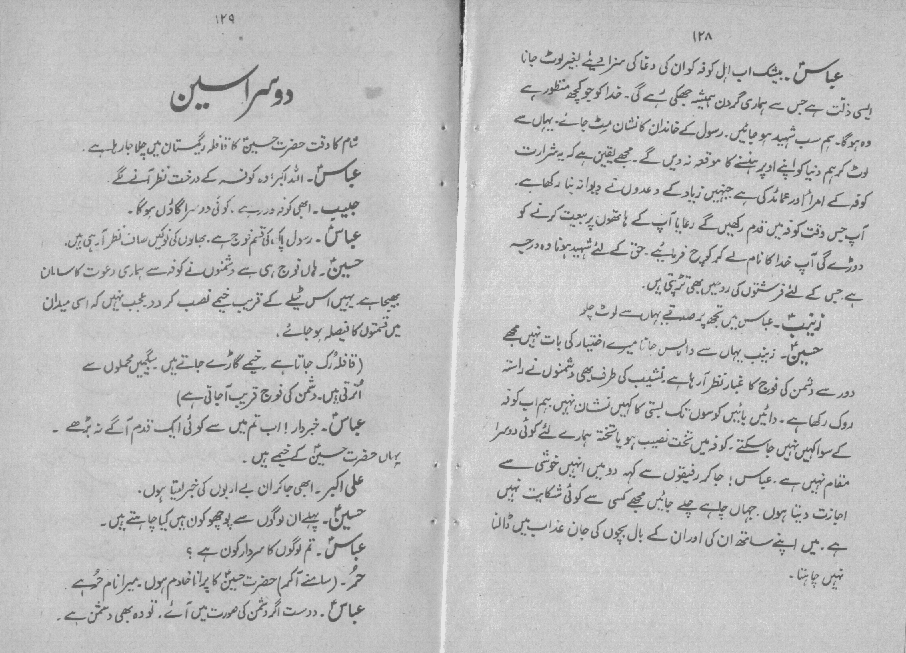 ۱۲۸
عباسؑ۔ بیشک اب اہل کوفہ کو ان کی دغا کی سزا دیئے بغیر لوٹ جانا
ایسی ذلت ہے جس سے ہماری گردن ہمیشہ جھکی رہے گی۔ خدا کو جو کچھ منظور ہے
وہ ہوگا۔ ہم سب شہید ہو جائیں۔ رسول کے خاندان کا نشان مٹ جائے۔ یہاں سے
لوٹ کر ہم دنیا کو اپنے اوپر ہنسنے کا موقعہ نہ دیں گے۔ مجھے یقین ہے کہ یہ شرارت
کوفہ کے امرا اور عمائد کی ہے جنہیں زیاد کے وعدوں نے دیوانہ بنا رکھا ہے۔
آپ جس وقت کوفہ میں قدم رکھیں گے رعایا آپ کے ہاتھوں پر بیعت کرنے کو
دوڑے گی آپ خدا کا نام لے کر کوچ فرمائیے۔ حق کے لئے شہید ہونا وہ درجہ
ہے جس کے لئے فرشتوں کی روحیں بھی تڑپتی ہیں۔
زینبؑ۔ عباس میں تجھ پر صدقے یہاں سے لوٹ چلو
حسینؑ۔ زینب یہاں سے واپس جانا میرے اختیار کی بات نہیں مجھے
دور سے دشمن کی فوج کا غبار نظر آ رہا ہے۔ نشیب کی طرف بھی دشمنوں نے راستہ
روک رکھا ہے۔ دائیں بائیں کوسوں تک بستی کا کہیں نشان نہیں۔ ہم اب کوفہ
کے سوا کہیں نہیں جا سکتے۔ کوفہ میں تخت نصیب ہو یا تختہ ہمارے لئے کوئی دوسرا
مقام نہیں ہے۔ عباس! جا کر رفیقوں سے کہہ دو میں انہیں خوشی سے
اجازت دیتا ہوں۔ جہاں چاہے چلے جائیں مجھے کسی سے کوئی شکایت نہیں
ہے۔ میں اپنے ساتھ ان کی اور ان کے بال بچوں کی جان عذاب میں ڈالنا
نہیں چاہتا۔
۱۲۹
دوسرا سین
شام کا وقت حضرت حسینؑ کا قافلہ ریگستان میں چلا جا رہا ہے۔
عباسؑ۔ اللہ اکبر! وہ کوفہ کے درخت نظر آنے لگے
حبیب۔ ابھی کوفہ دور ہے۔ کوئی دوسرا گاؤں ہوگا۔
عباسؑ۔ رسول پاک کی قسم فوج ہے۔ بھالوں کی نوکیں صاف نظر آ رہی ہیں۔
حسینؑ۔ ہاں فوج ہی ہے دشمنوں نے کوفہ سے ہماری دعوت کا سامان
بھیجا ہے۔ یہیں اس ٹیلے کے قریب خیمے نصب کر دو۔ عجب نہیں کہ اسی میدان
میں قسمتوں کا فیصلہ ہو جائے۔
(قافلہ رک جاتا ہے خیمے گاڑے جاتے ہیں۔ بیگمیں محملوں سے
اُترتی ہیں۔ دشمن کی فوج قریب آ جاتی ہے)
عباسؑ۔ خبردار! اب تم میں سے کوئی ایک قدم آگے نہ بڑھے۔
یہاں حضرت حسینؑ کے خیمے ہیں۔
علی اکبر۔ ابھی جا کر ان بے ادبوں کی خبر لیتا ہوں۔
حسینؑ۔ پہلے ان لوگوں سے پوچھو کون ہیں کیا چاہتے ہیں۔
عباسؑ۔ تم لوگوں کا سردار کون ہے؟
حُر۔ (سامنے آکر) حضرت حسینؑ کا پرانا خادم ہوں۔ میرا نام حُر ہے
عباسؑ۔ دوست اگر دشمن کی صورت میں آئے۔ تو وہ بھی دشمن ہے۔